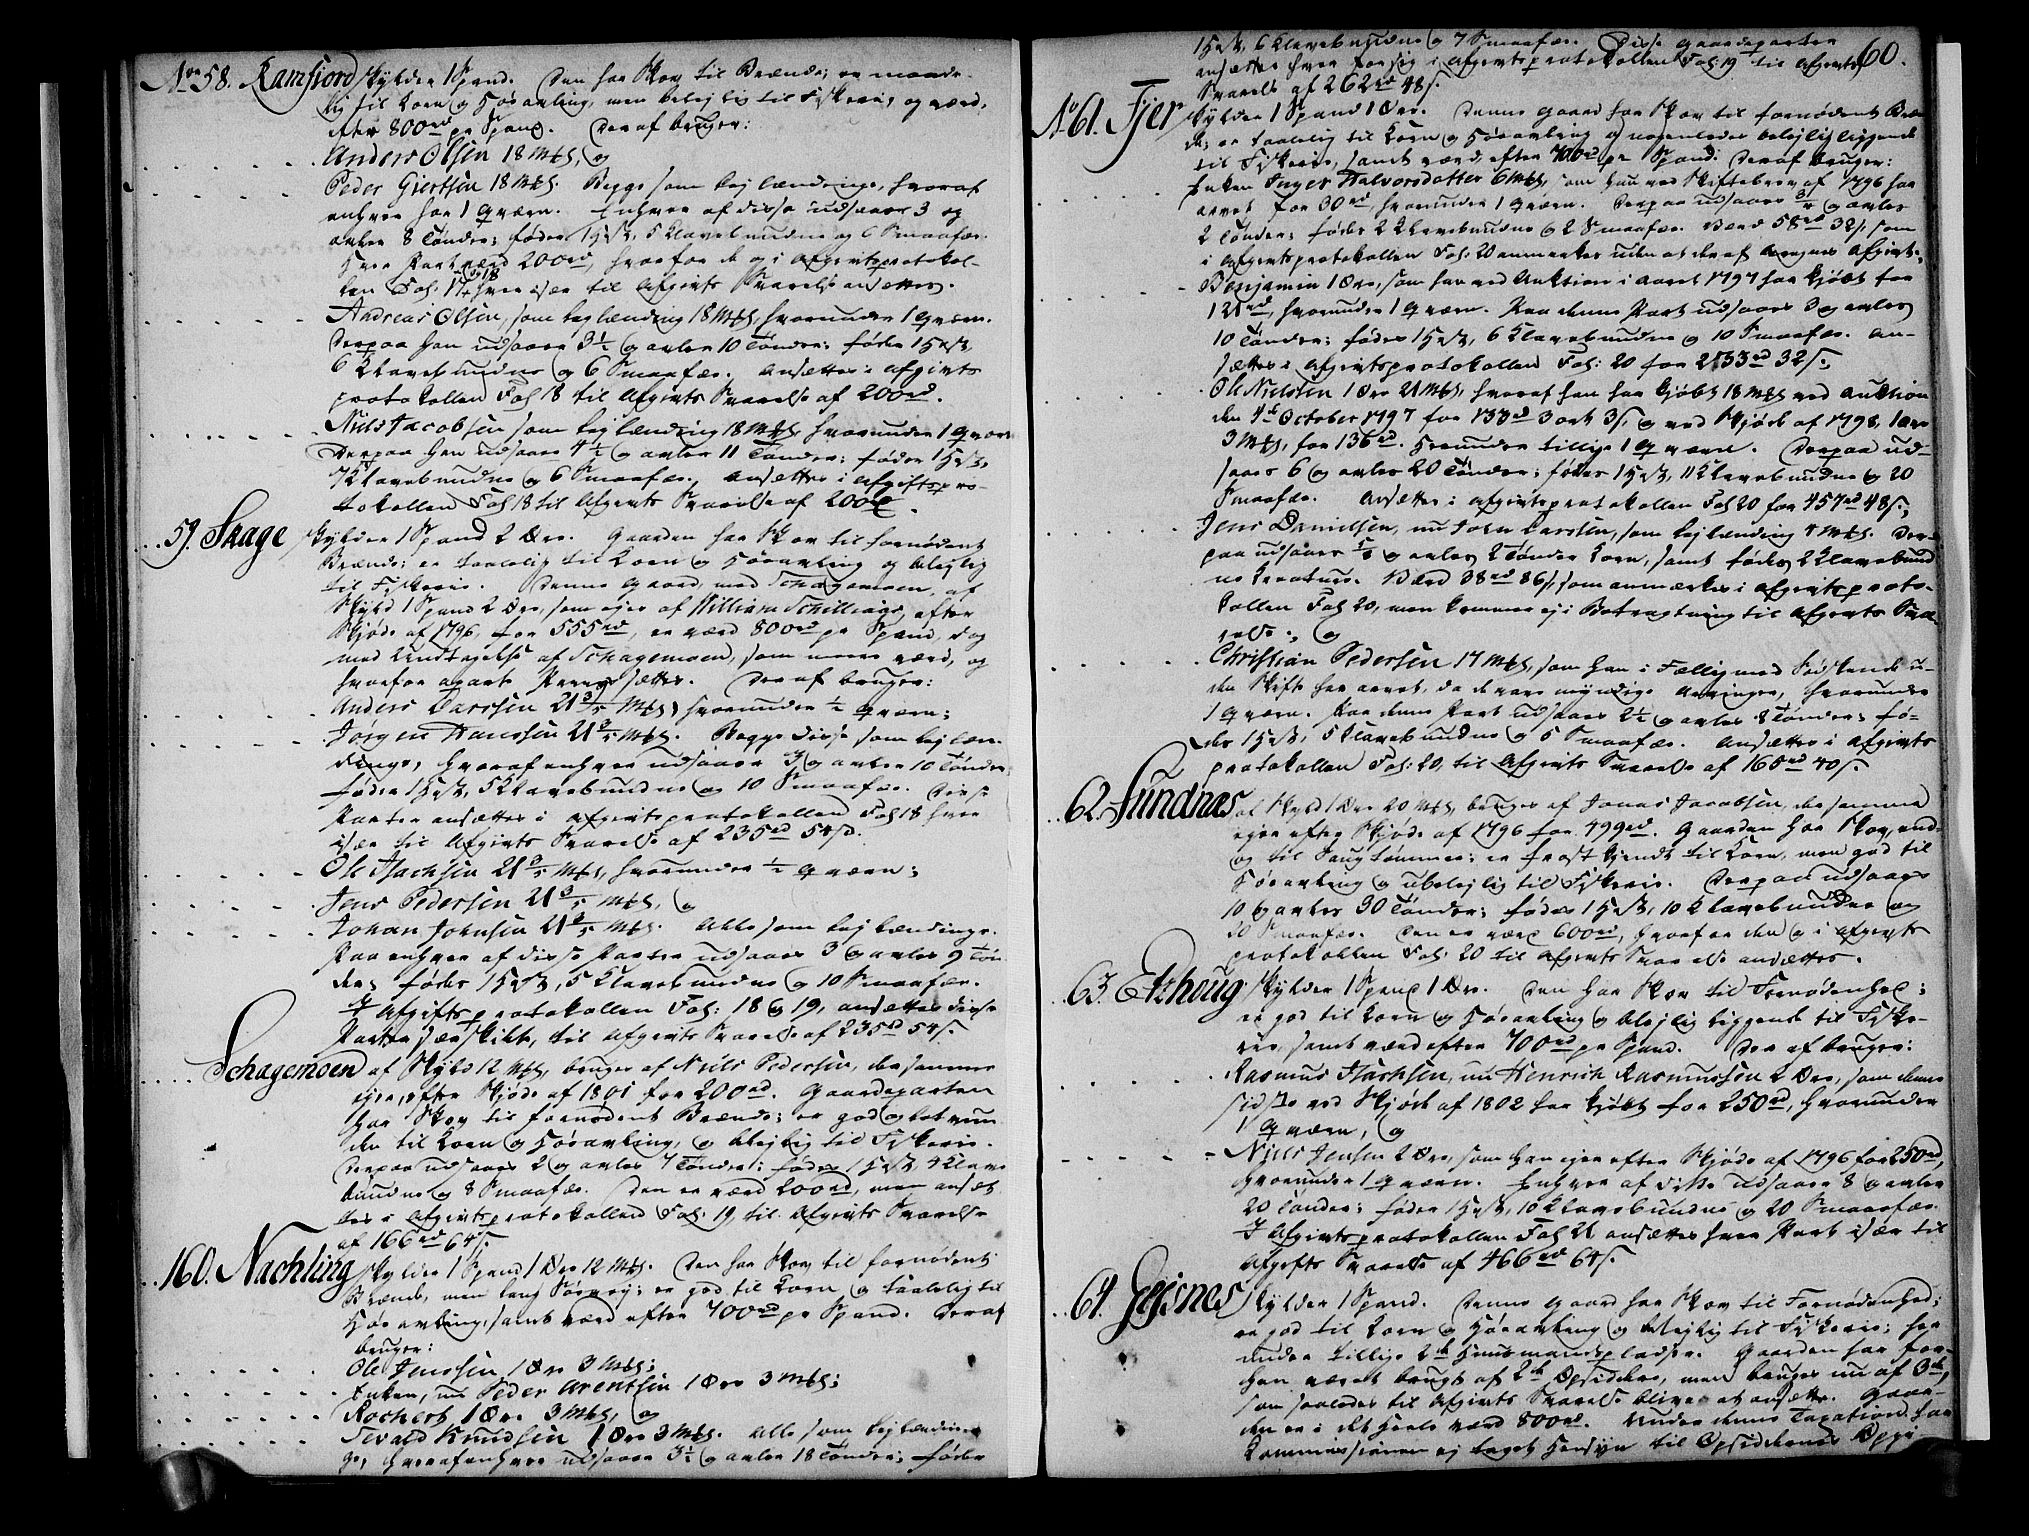 No. 58. Ramfjord skylder 1 Spand. Den har Skov til Brænde; er maade-
lig til Korn og Høeavling, men belejlig til Fiskerie, og værd,
efter 800rd pr Spand. Deraf bruger:
Anders Olsen 18 mkl, og
Peder Giertsen 18 mkl. Begge som bejlændinge, hvoraf
enhver har 1 Qværn. Enhver af disse udsaaer 3 og
avler 8 Tønder; føder 1 Hest, 5 Klavebundne og 6 Smaafæe.
Hver Part værd 200rd, hvorfor de og i Afgivtsprotokol-
len Fol: 17 og 18 hver især til Afgivts Svarelse ansættes.
Andreas Olsen, som bejlænding 18 mkl, hvorunder 1 Qværn.
Derpaa han udsaaer 3½ og avler 10 Tønder; føder 1 Hest,
6 Klavebundne og 6 Smaafæe. Ansættes i Afgivts
protokollen Fol 18 til Afgivts Svarelse af 200rd.
Niels Jacobsen som bejlænding 18 mkl, hvorunder 1 Qværn
Derpaa han udsaaer 4½ og avler 11 Tønder; føder 1 Hest,
7 Klavebundne og 6 Smaafæe, ansættes i Afgiftspro-
tokollen Fol 18 til Afgivts Svarelse af 200rd.
59. Skage skylder 1 Spand 2 Øre. Gaarden har Skov til fornødent
Brænde; er taalelig til Korn og Høeavling og belejlig
til Fiskerie. Denne Gaard, med Schagemoen, af
Skyld 1 Spand 2 Øre, som ejes af William Schillings, efter
Skjøde af 1796, for 555rd, er værd 800rd pr Spand, dog
med Undtagelse af Schagemoen, som mere værd, og
hvorfor apart Priis sættes. Deraf bruger:
Anders Larssen 21 3/5 mkl, hvorunder ½ Qværn;
Jørgen Hanssen 21 3/5 mkl. Begge disse som bejlæn-
dinge, hvoraf enhver udsaaer 3 og avler 10 Tønder,
føder 1 Hest, 5 Klavebundne og 10 Smaafæe. Disse
Parter ansættes i Afgivtsprotokollen Fol 18 hver
især til Afgivts Svarelse af 235rd 54s.
Ole Isachsen 21 3/5 mkl, hvorunder ½ Qværn;
Jens Pedersen 21 3/5 mkl, og
Johan Johnsen 21 3/5 mkl. Alle som bejlændinge.
Paa enhver af disse Parter udsaaes 3 og avles 9 Tøn-
der; føder 1 Hest, 5 Klavebundne og 10 Smaafæe.
I Afgiftsprotokollen Fol: 18 og 19, ansættes disse
Parter særskilt, til Afgivts Svarelse af 235rd 54s.
Schagemoen af Skyld 12 mkl, bruges af Niels Pedersen, der samme
ejer, efter Skjøde af 1801 for 200rd. Gaardeparten
har Skov til fornødent Brænde; er god og letvun
den til Korn og Høeavling, og belejlig til Fiskerie.
Derpaa udsaaes 2 og avles 7 Tønder; føder 1 Hest, 4 Klave
bundne og 8 Smaafæe. Den er værd 200rd, men ansæt
tes i Afgivtsprotokollen Fol: 19, til Afgivts Svarelse
af 166rd 64s.
160. Nachling skylder 1 Spand 1 Øre 12 mkl. Den har Skov til fornødent
Brænde, men lang Vey; er god til Korn, og taalelig til
Høeavling, samt værd efter 700rd pr Spand. Deraf
bruger:
Ole Jenssen 1 Øre 3 mkl;
Enken, nu Peder Arentsen 1 Øre 3 mkl;
Rochert 1 Øre 3 mkl, og
Sevald Knudsen 1 Øre 3 mkl. Alle som bejlændin
ge, hvoraf enhver udsaaer 3½ og avler 18 Tønder; føder
60.
1 Hest, 6 Klavebundne og 7 Smaafæe. Disse Gaardeparter
ansættes hver for sig i Afgivtsprotokollen Fol: 19 til Afgivts
Svarelse af 262rd 48s.
No 61. Fjer skylder 1 Spand 1 Øre. Denne Gaard har Skov til fornødent Bræn
de; er taalelig til Korn og Høeavling og nogenledes belejlig liggende
til Fiskerie, samt værd efter 700rd pr Spand. Deraf bruger:
Enken Inger Halvorsdatter 6 mkl, som hun ved Skiftebrev af 1796 har
arvet for 30rd, hvorunder 1 Qværn. Derpaa udsaaes 3/4 og avles
2 Tønder; føder 2 Klavebundne og 2 Smaafæe. Værd 58rd 32s, som
i Afgivtsprotokollen Fol: 20 anmærkes uden at deraf beregnes Afgivt.
Benjamin 1 Øre, som har ved Auktion i Aaret 1797 har kjøbt for
121rd, hvorunder 1 Qværn. Paa denne Part udsaaes 3 og avles
10 Tønder; føder 1 Hest, 6 Klavebundne og 10 Smaafæe. An-
sættes i Afgivtsprotokollen Fol: 20 for 233rd 32s.
Ole Nielsen 1 Øre 21 mkl, hvoraf han har kjøbt 18 mkl ved Auktion
den 4de October 1797 for 133rd 3 ort 3s, og ved Skjøde af 1798, 1 Øre
3 mkl, for 136rd. Herunder tillige 1 Qværn. Derpaa ud-
saaes 6 og avles 20 Tønder; føder 1 Hest, 11 Klavebundne og 20
Smaafæe. Ansættes i Afgivtsprotokollen Fol 20 for 457rd 48s;
Jens Danielsen, nu John Larssen, som bejlænding 4 mkl. Der-
paa udsaaes 5/8 og avles 2 Tønder Korn, samt føder 2 Klavebund
ne Kreature. Værd 38rd 86s, som anmærkes i Afgivtsproto-
kollen Fol 20, men kommer ej i Betragtning til Afgivts Sva-
relse; og
Christian Pedersen 17 mkl, som han i Fællig med Sødskende u-
den Skifte har arvet, da de vare myndige Arvinger, hvorunder
1 Qværn. Paa denne Part udsaaes 2½ og avles 8 Tønder; fø-
der 1 Hest, 5 Klavebundne og 5 Smaafæe. Ansættes i Afgivts
protokollen Fol: 20, til Afgivts Svarelse af 165rd 40s.
62. Sundnæs af Skyld 1 Øre 20 mkl, bruges af Jonas Jacobsen, der samme
ejer efter Skjøde af 1796 for 499rd. Gaarden har Skov, end-
og til Saugtømmer; er frost kjendt til Korn, men god til
Høeavling og ubelejlig til Fiskerie. Derpaa udsaaes
10 og avles 30 Tønder; føder 1 Hest, 10 Klavebundne og
20 Smaafæe. Den er værd 600rd, hvorfor den og i Afgivts
protokollen Fol: 20 til Afgivts Svarelse ansættes.
63. Elzhoug skylder 1 Spand 1 Øre. Den har Skov til Fornødenhed;
er god til Korn og Høeavling og belejlig liggende til Fiske-
rie, samt værd efter 700rd pr Spand. Deraf bruger:
Rasmus Isachsen, nu Henrich Rasmussen 2 Øre, som denne
sidste ved Skjøde af 1802 har kjøbt for 250rd, hvorunder
1 Qværn, og
Niels Jensen 2 Øre, som han ejer efter Skjøde af 1796 for 250rd,
hvorunder 1 Qværn. Enhver af disse udsaaer 8 og avler
20 Tønder; føder 1 Hest, 10 Klavebundne og 20 Smaafæe.
I Afgivtsprotokollen Fol 21 ansættes hver Part især til
Afgifts Svarelse af 466rd 64s.
64. Jejsnes skylder 1 Spand. Denne Gaard har Skov til Fornødenhed;
er god til Korn og Høeavling og belejlig til Fiskerie; har
under tillige 2de Huusmandspladser. Gaarden har for-
hen været brugt af 2de Opsiddere, men bruges nu af 3de,
som saaledes til Afgivts Svarelse bliver at ansætte. Gaar-
den er i det Heele værd 800rd. Under denne Taxation har
Kommissionen ej taget Hensyn til Opsiddernes Oppe-